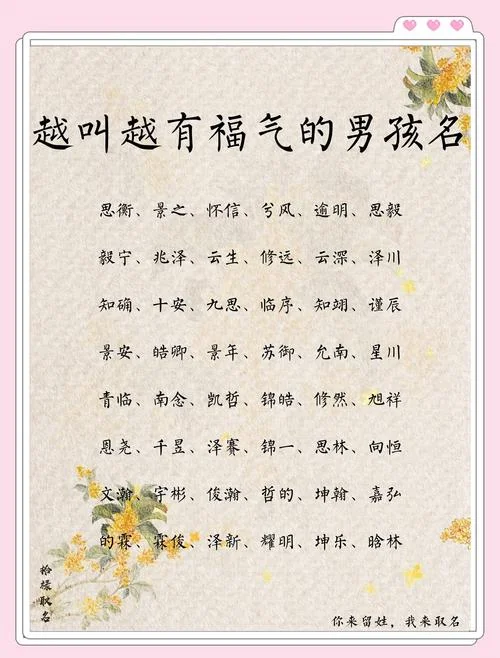 越叫越有福气的男孩名
思衡、景之、怀信、兮风、逾明、思毅
毅宁、兆泽、云生、修远、云深、泽川
知确、十安、九思、临序、知翊、谨辰
景安、皓卿、景年、苏御、允南、星川
青临、南念、凯哲、锦皓、修然、旭祥
恩尧、千昱、泽赛、锦一、思林、向恒
文瀚、宇彬、俊瀚、哲的、坤翰、嘉弘
的霖、霖俊、泽新、耀明、坤乐、晗林
取名
你来留姓，我来取名